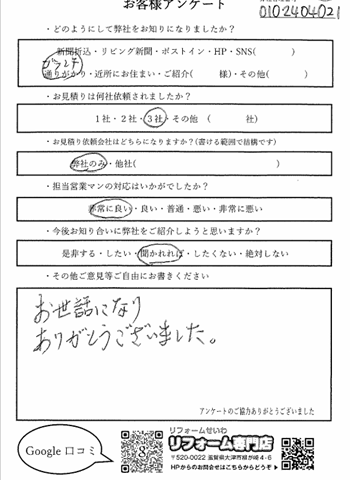 お客様アンケート
0102404021
・どのようにして弊社をお知りになりましたか？
新聞折込・リビング新聞・ポストイン・HP・SNS(　　　)
チラシ
通りがかり・近所にお住まい・ご紹介(　　　様)・その他(　　　)
・お見積りは何社依頼されましたか？
1社・2社・3社・その他 (　　　社)
・お見積り依頼会社はどちらになりますか？(書ける範囲で結構です)
弊社のみ・他社(　　　)
・担当営業マンの対応はいかがでしたか？
非常に良い・良い・普通・悪い・非常に悪い
・今後お知り合いに弊社をご紹介しようと思いますか？
是非する・したい・聞かれれば・したくない・絶対しない
・その他ご意見等ご自由にお書きください
お世話になり
ありがとうございました。
アンケートのご協力ありがとうございました
Google 口コミ
リフォームせいわ
リフォーム専門店
〒520-0022 滋賀県大津市柳が崎4-6
HPからのお問合せはこちらからどうぞ▶